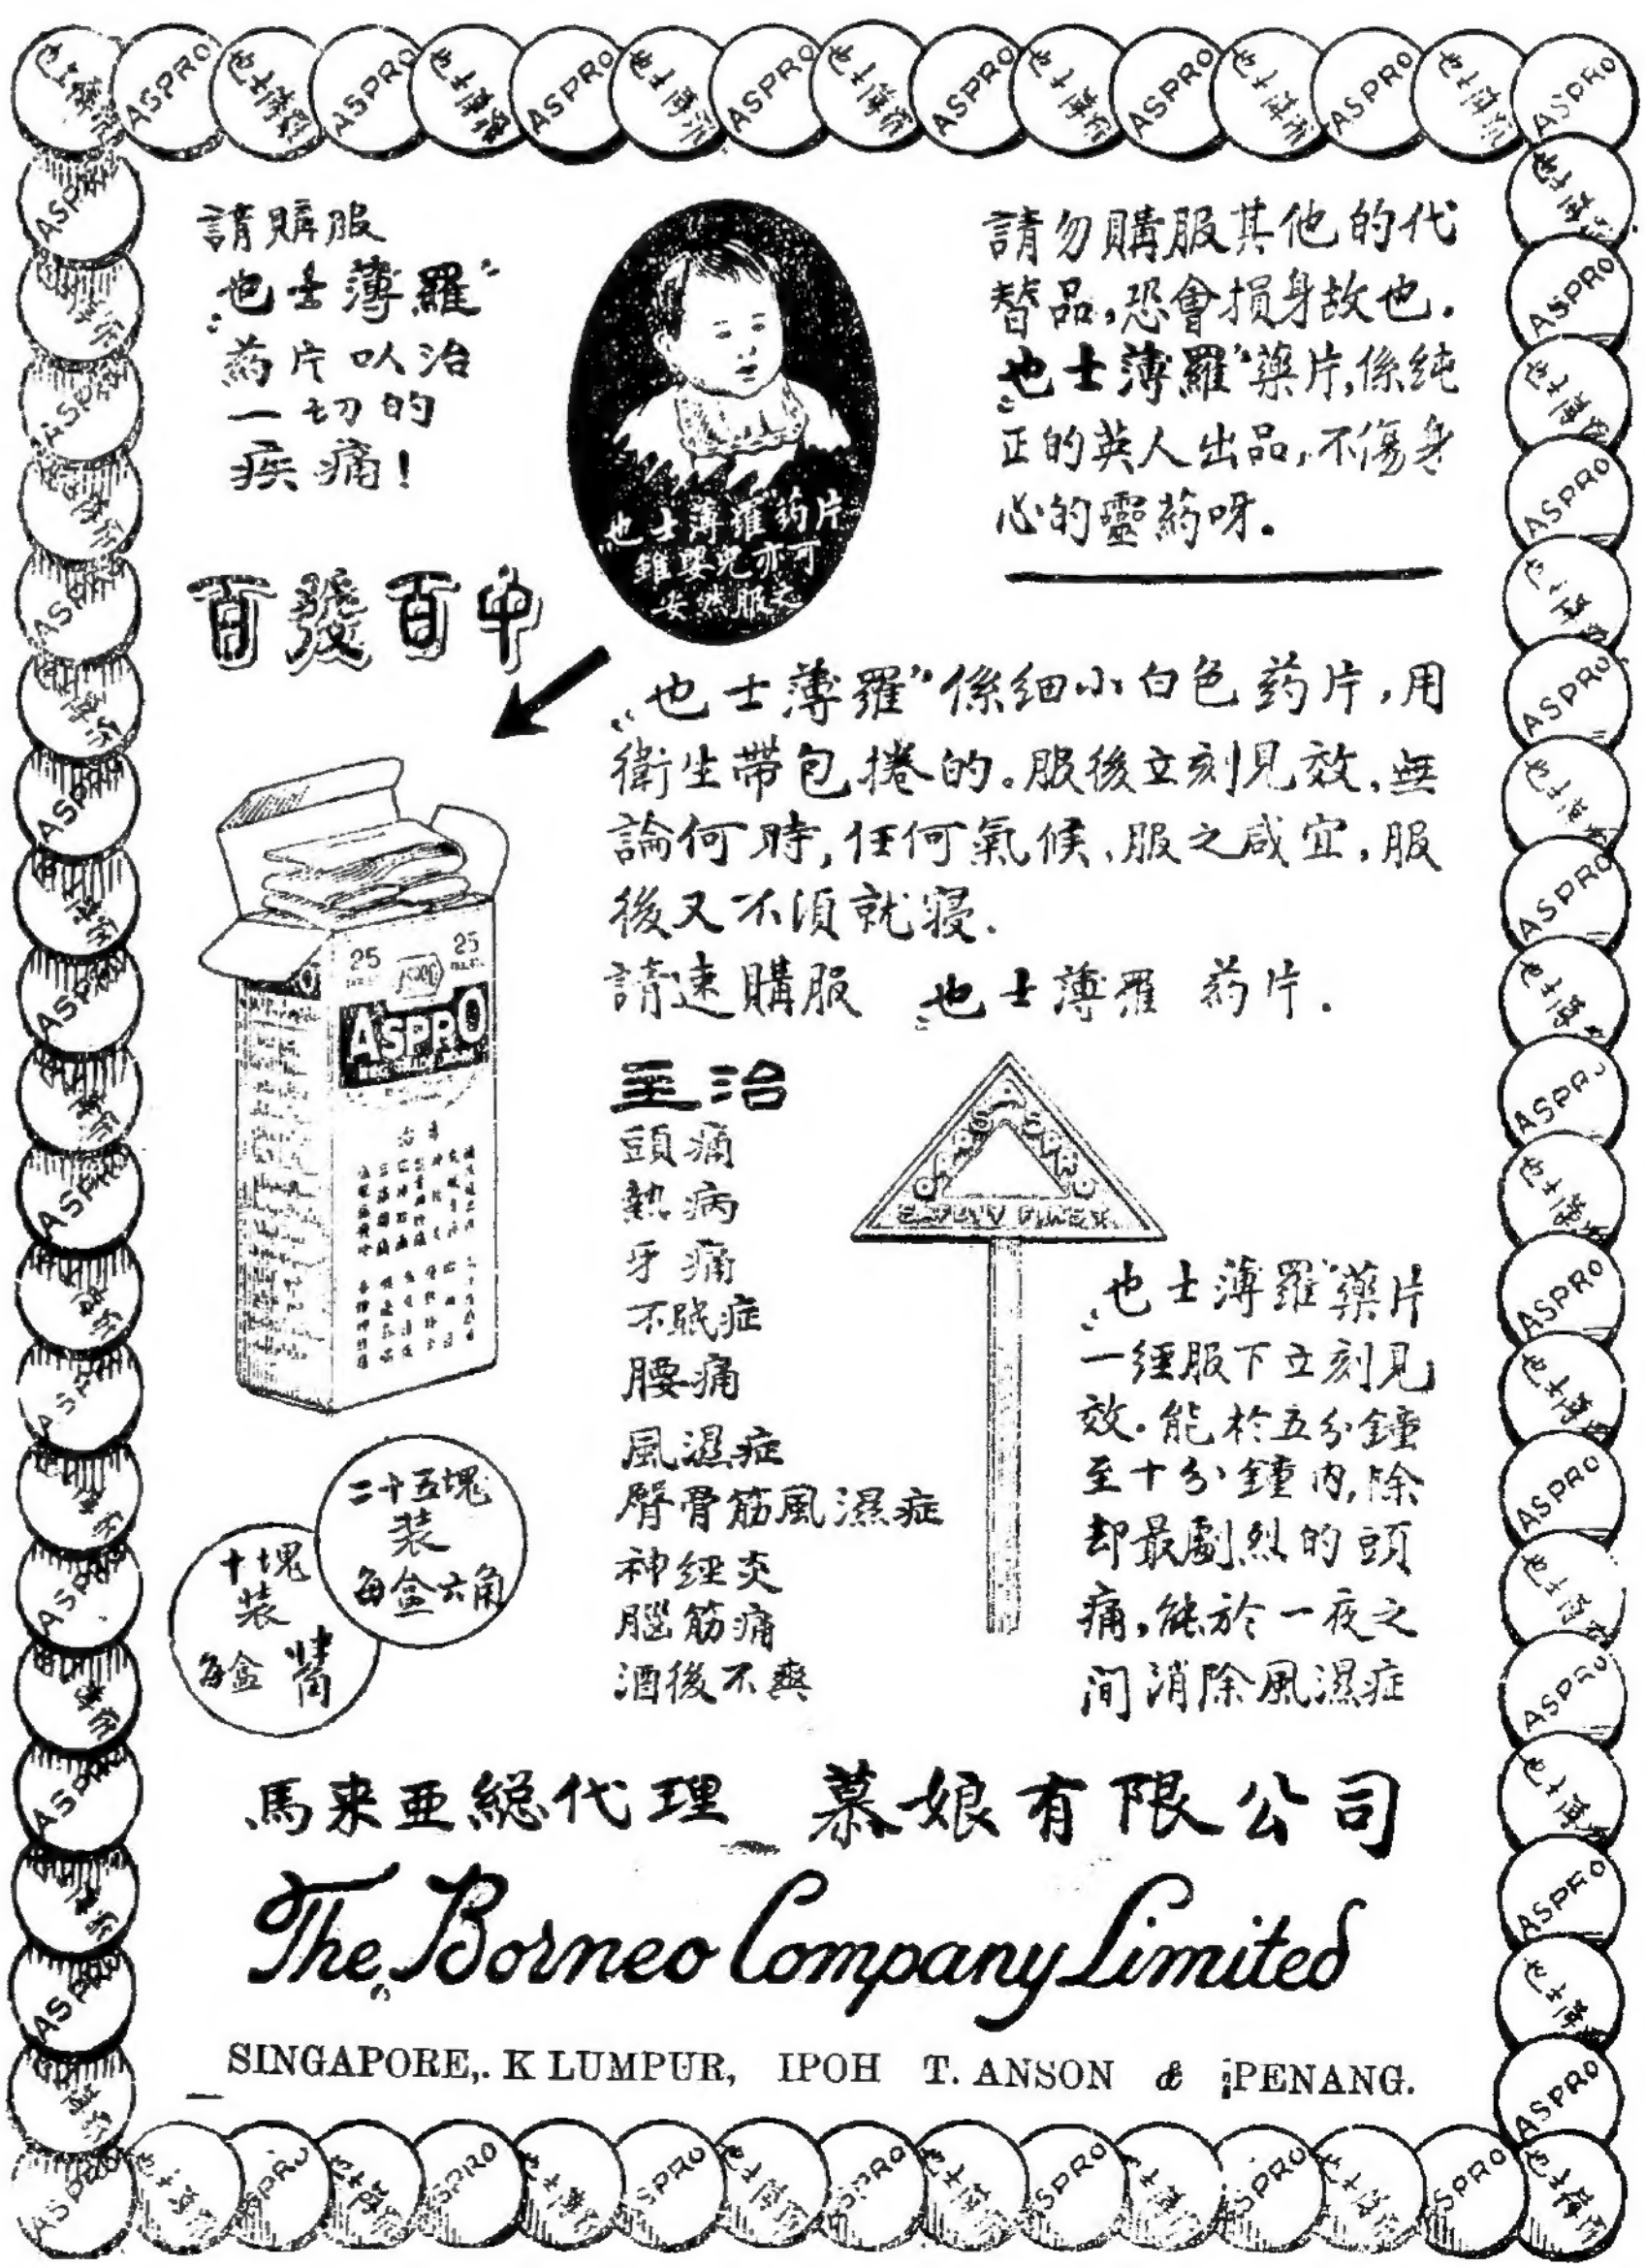 請購服
"也士薄羅"
药片以治
一切的
疾痛!
百發百中
"也士薄羅"药片
雖嬰兒亦可
安然服之
請勿購服其他的代
替品,恐會損身故也.
"也士薄羅"藥片,係純
正的英人出品,不傷身
心的靈药呀。
"也士薄羅"係细小白色药片,用
衛生帶包捲的。服後立刻見效,無
論何時,任何氣候、服之咸宜,服
後又不須就寝.
請速購服 "也士薄羅 药片.
25 25
ASPRO
主治
頭痛
熱病
牙痛
不眠症
腰痛
風濕症
臀骨筋風濕症
神經炎
腦筋痛
酒後不爽
"也士薄羅"藥片
一經服下立刻見
效.能於五分鐘
至十分鐘内,除
却最劇烈的頭
痛,能於一夜之
间消除風濕症
二十五塊
装
每盒六角
十塊
装
每盒
馬来亜総代理 慕娘有限公司
The Borneo Company Limited
SINGAPORE,. K LUMPUR, IPOH T. ANSON & PENANG.